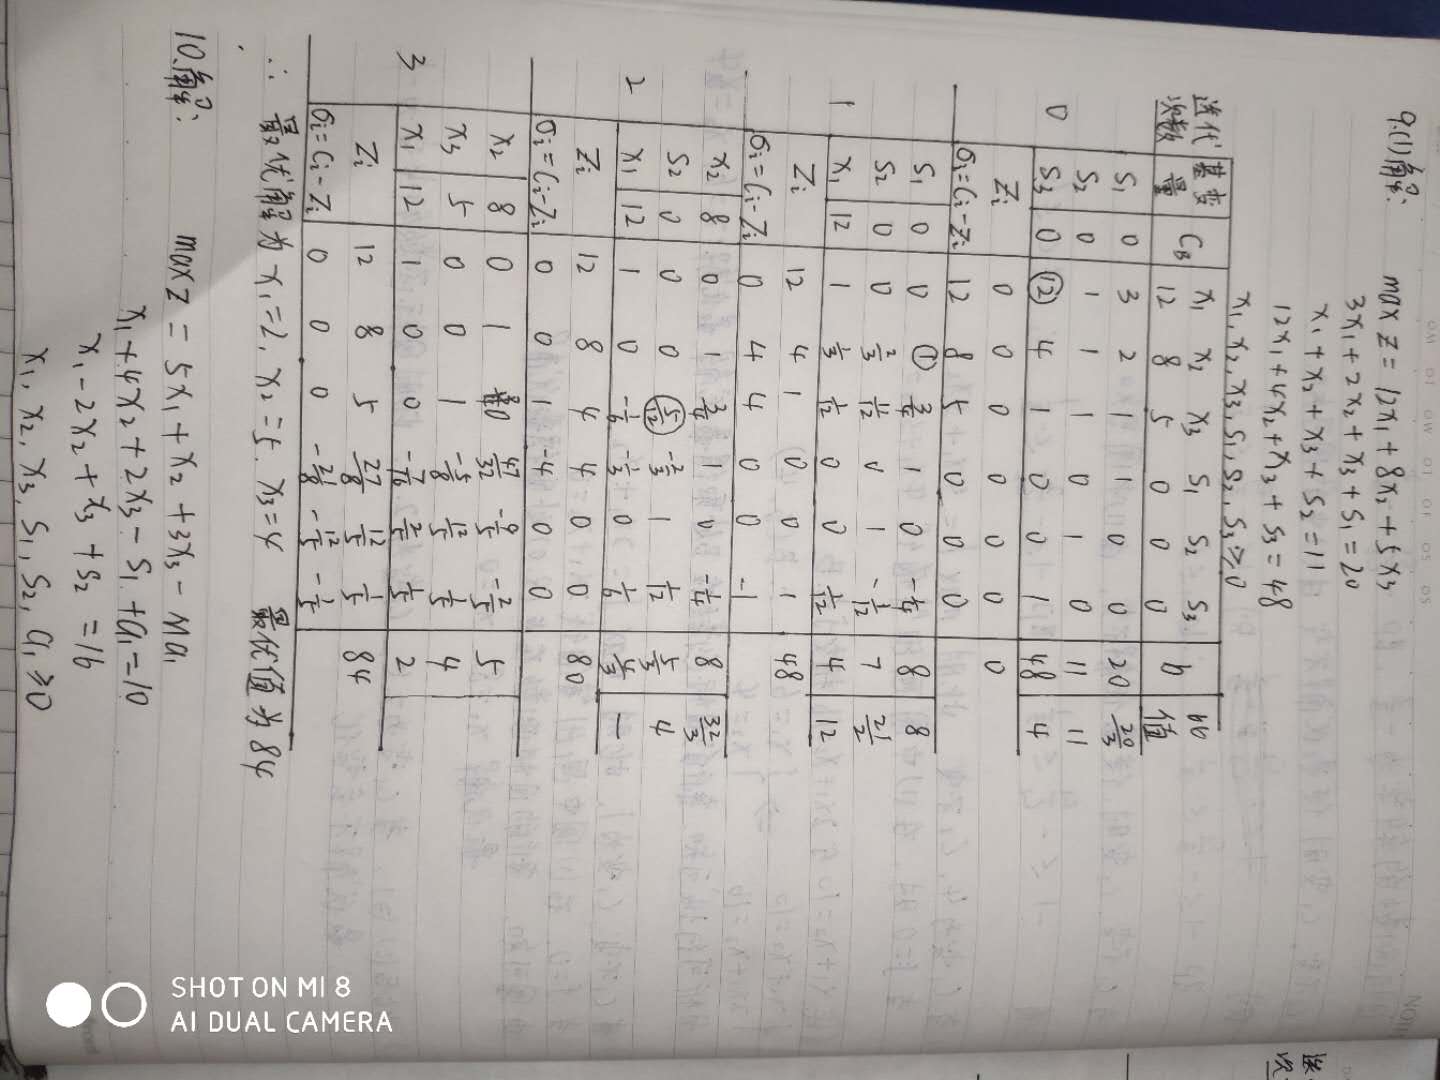 9.(1)解: max z = 12x₁ + 8x₂ + 5x₃
3x₁ + 2x₂ + x₃ + s₁ = 20
x₁ + x₂ + x₃ + s₂ = 11
12x₁ + 4x₂ + x₃ + s₃ = 48
x₁, x₂, x₃, s₁, s₂, s₃ ≥ 0
迭代次数 基变量 C_B x₁ x₂ x₃ s₁ s₂ s₃ b 比值
12 8 5 0 0 0
0 s₁ 0 3 2 1 1 0 0 20 20/3
s₂ 0 1 1 1 0 1 0 11 11
s₃ 0 ⑫ 4 1 0 0 1 48 4
Zᵢ 0 0 0 0 0 0 0
σᵢ=Cᵢ-Zᵢ 12 8 5 0 0 0
1 s₁ 0 0 ① 3/4 1 0 -1/4 8 8
s₂ 0 0 2/3 11/12 0 1 -1/12 7 21/2
x₁ 12 1 1/3 1/12 0 0 1/12 4 12
Zᵢ 12 4 1 0 0 1 48
σᵢ=Cᵢ-Zᵢ 0 4 4 0 0 -1
2 x₂ 8 0 1 3/4 1 0 -1/4 8 32/3
s₂ 0 0 0 (5/12) -2/3 1 1/12 5/3 4
x₁ 12 1 0 -1/6 -1/3 0 1/6 4/3 —
Zᵢ 12 8 4 4 0 0 80
σᵢ=Cᵢ-Zᵢ 0 0 1 -4 0 0
3 x₂ 8 0 1 0 47/32 -9/5 -2/5 5
x₃ 5 0 0 1 -5/8 12/5 1/5 4
x₁ 12 1 0 0 -7/16 2/5 1/5 2
Zᵢ 12 8 5 27/8 12/5 1/5 84
σᵢ=Cᵢ-Zᵢ 0 0 0 -27/8 -12/5 -1/5
∴ 最优解为 x₁=2, x₂=5, x₃=4 最优值为84
10.解: max z = 5x₁ + x₂ + 3x₃ - Ma₁
x₁ + 4x₂ + 2x₃ - s₁ + a₁ = 10
x₁ - 2x₂ + x₃ + s₂ = 16
x₁, x₂, x₃, s₁, s₂, a₁ ≥ 0
SHOT ON MI 8
AI DUAL CAMERA